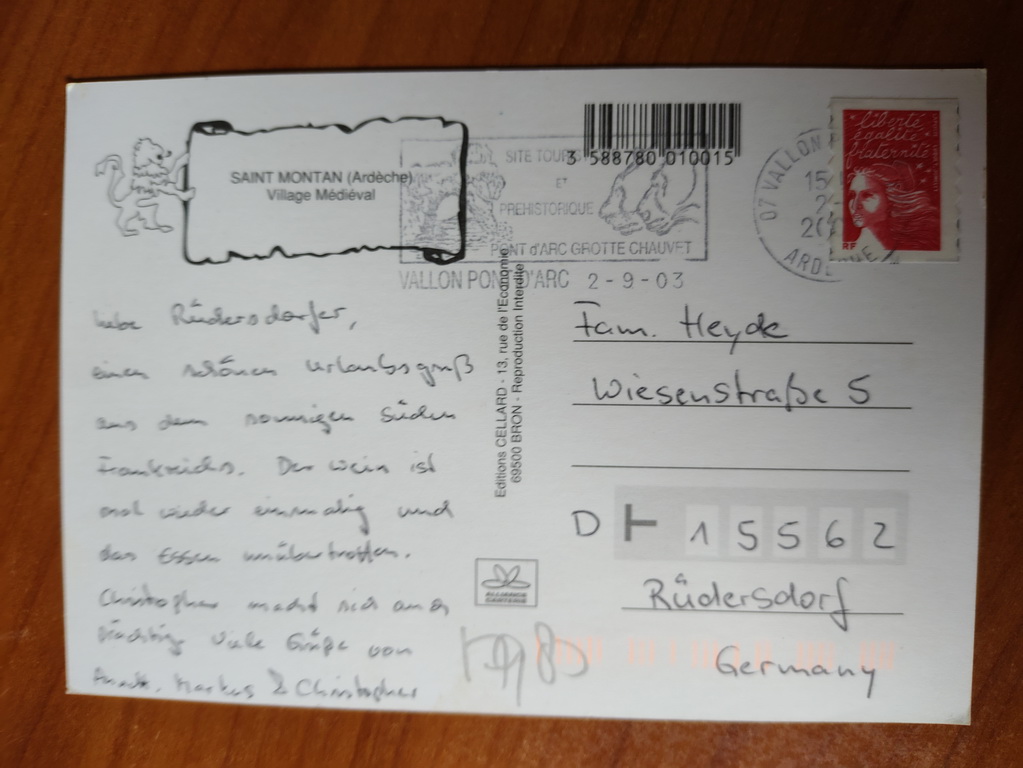 SAINT MONTAN (Ardèche)
Village Médiéval
SITE TOURIS
ET
PREHISTORIQUE
PONT d'ARC GROTTE CHAUVET
VALLON PONT D'ARC 2-9-03
3 588780 010015
07 VALLON
15
2
20
ARD
liberté
égalité
fraternité
RF
liebe Rüdersdorfer,
einen schönen Urlaubsgruß
aus dem sonnigen Süden
Frankreichs. Der Wein ist
mal wieder einmalig und
das Essen unübertroffen.
Christopher macht sich auch
prächtig Viele Grüße von
Markus & Christopher
Editions CELLARD - 13, rue de l'Economie
69500 BRON - Reproduction Interdite
ALLIANCE
CARTERIE
Fam. Heyde
Wiesenstraße 5
D 15562
Rüdersdorf
Germany